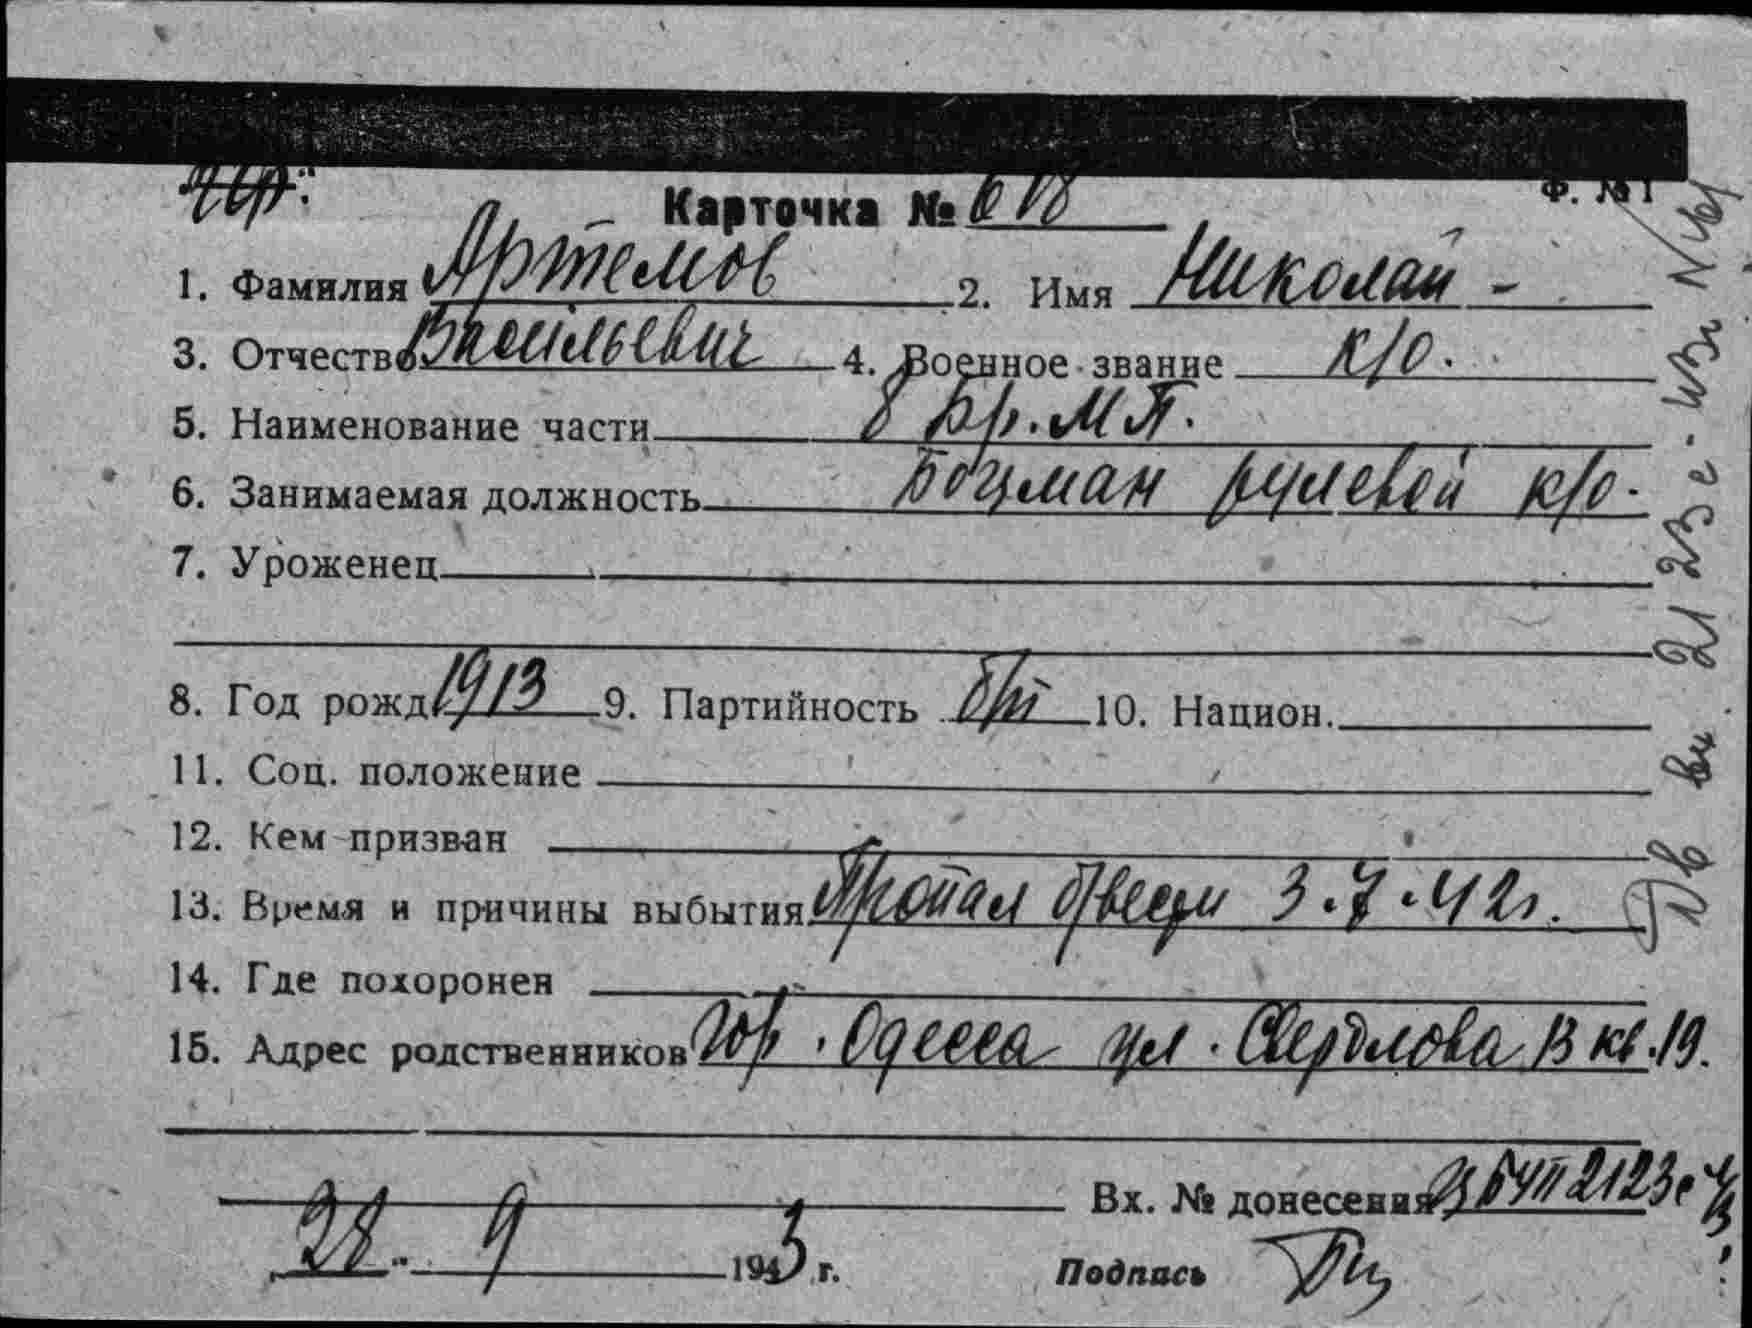 Ф. № 1
Карточка № 618
1. Фамилия Артемов 2. Имя Николай -
3. Отчество Васильевич 4. Военное звание к/о.
5. Наименование части 8 бр. МП.
6. Занимаемая должность Боцман рулевой к/о.
7. Уроженец
8. Год рожд. 1913 9. Партийность б/п 10. Национ.
11. Соц. положение
12. Кем призван
13. Время и причины выбытия Пропал б/вести 3.7.42г.
14. Где похоронен
15. Адрес родственников Гор. Одесса ул. Свердлова 13 кв. 19.
Вх. № донесения 2123с
28. 9 1943 г.
Подпись